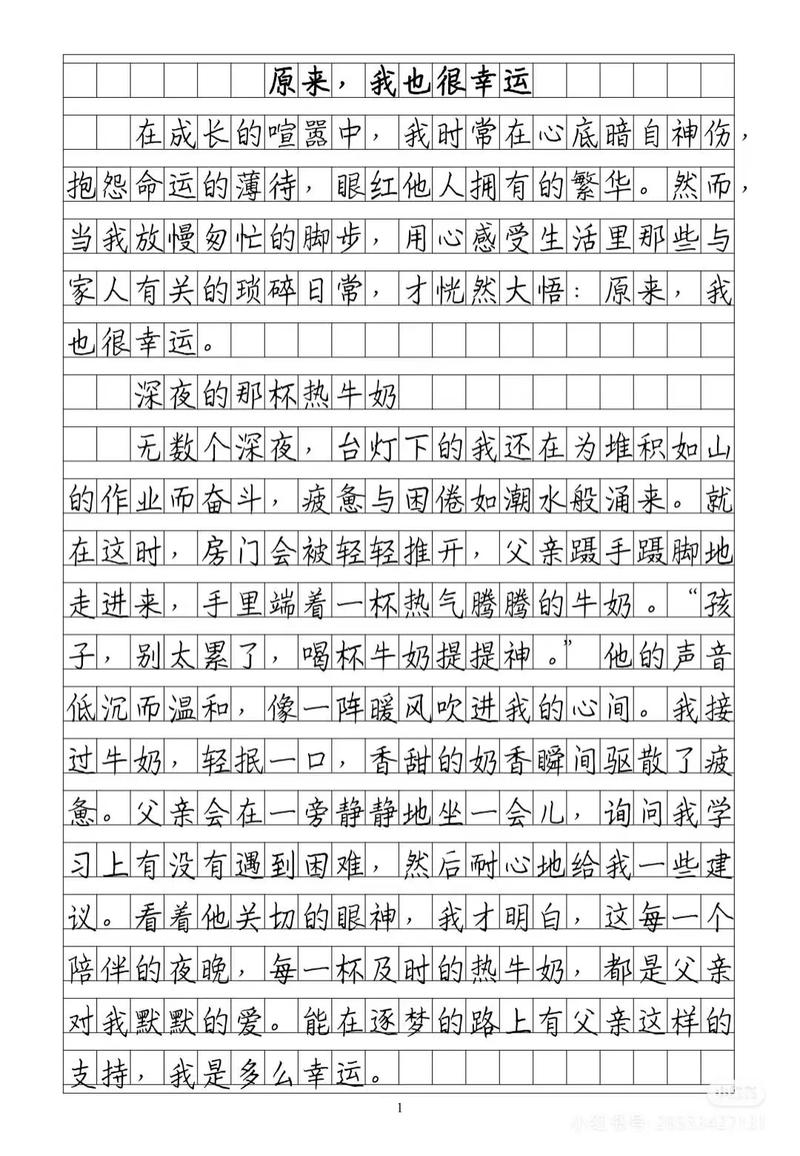 原来，我也很幸运
在成长的喧嚣中，我时常在心底暗自神伤，
抱怨命运的薄待，眼红他人拥有的繁华。然而，
当我放慢匆忙的脚步，用心感受生活里那些与
家人有关的琐碎日常，才恍然大悟：原来，我
也很幸运。
深夜的那杯热牛奶
无数个深夜，台灯下的我还在为堆积如山
的作业而奋斗，疲惫与困倦如潮水般涌来。就
在这时，房门会被轻轻推开，父亲蹑手蹑脚地
走进来，手里端着一杯热气腾腾的牛奶。“孩
子，别太累了，喝杯牛奶提提神。”他的声音
低沉而温和，像一阵暖风吹进我的心间。我接
过牛奶，轻抿一口，香甜的奶香瞬间驱散了疲
惫。父亲会在一旁静静地坐一会儿，询问我学
习上有没有遇到困难，然后耐心地给我一些建
议。看着他关切的眼神，我才明白，这每一个
陪伴的夜晚，每一杯及时的热牛奶，都是父亲
对我默默的爱。能在逐梦的路上有父亲这样的
支持，我是多么幸运。
1
小红书号：